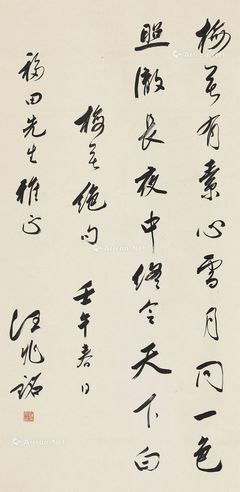 梅花有素心雪月同一色
照澈長夜中終令天下白
梅花絕句 壬午春日
福田先生雅正
汪兆銘